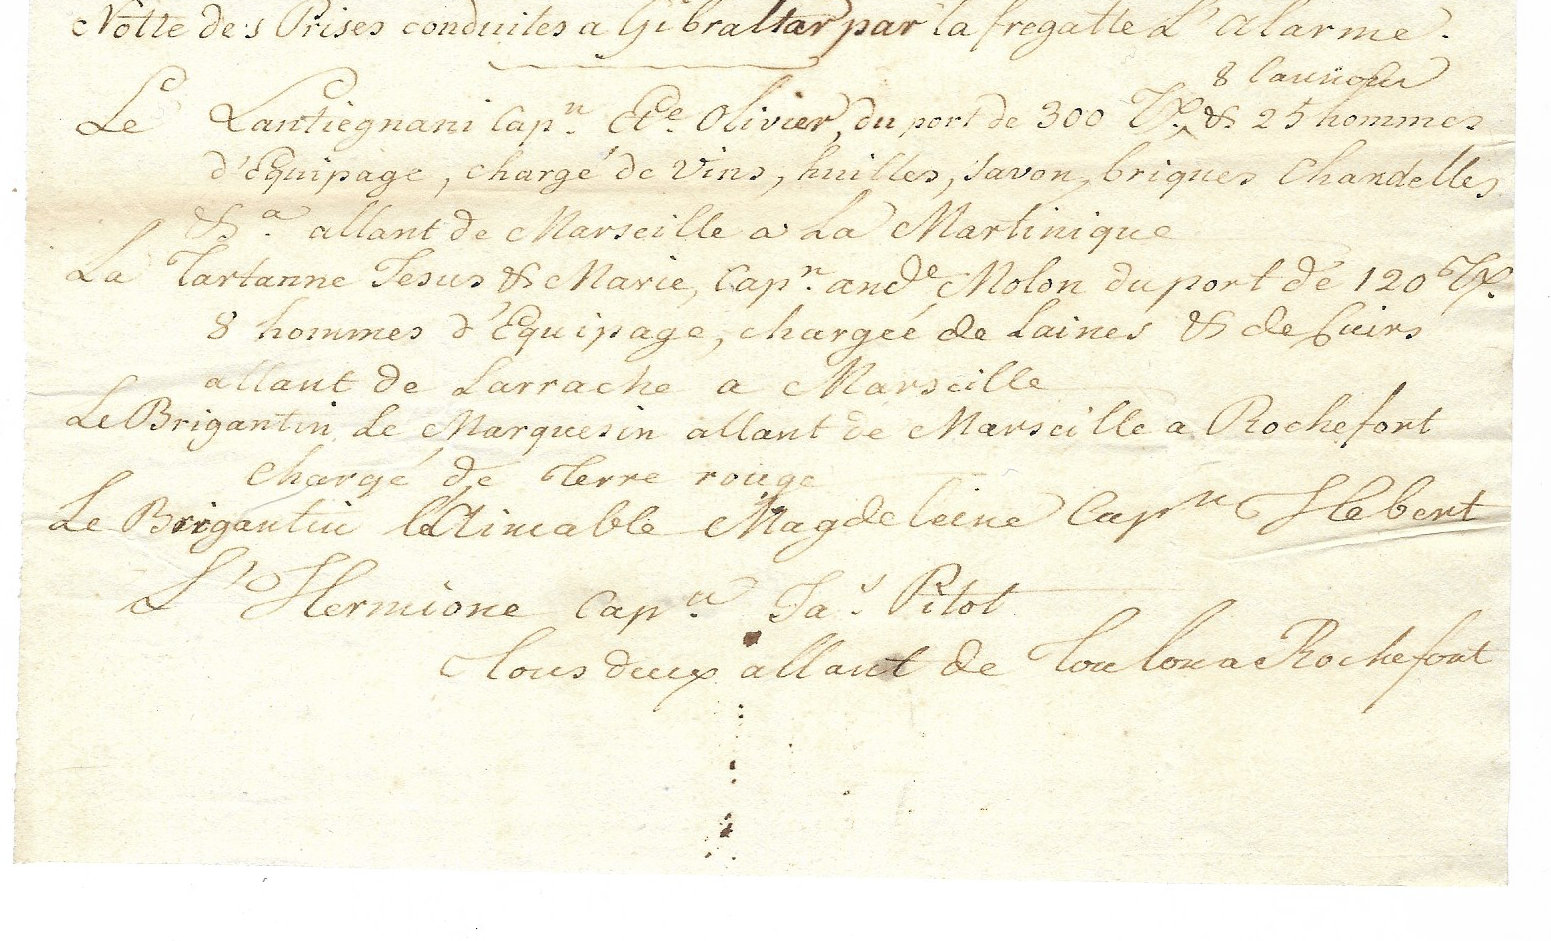 Notte des Prises conduites a Gibraltar par la fregatte L'alarme.
8 Canons
Le Lantiegnani Capn. Ete. Olivier, du port de 300 Tx. & 25 hommes
d'Equipage, chargé de Vins, huilles, savon, briques Chandelles
&a. allant de Marseille a La Martinique
La Tartanne Jesus & Marie, Capn. andé Molon du port de 120 Tx.
8 hommes d'Equipage, chargée de Laines & de Cuirs
allant de Larrache a Marseille
Le Brigantin Le Marquesin allant de Marseille a Rochefort
chargé de terre rouge
Le Brigantin l'Aimable Magdeleine Capn Hebert
L'Hermione Capn. Jas Pitot
Tous deux allant de Toulon a Rochefort